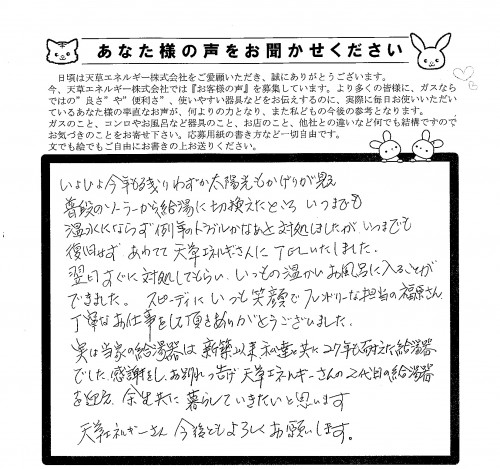 あなた様の声をお聞かせください
日頃は天草エネルギー株式会社をご愛顧いただき、誠にありがとうございます。
今、天草エネルギー株式会社では『お客様の声』を募集しています。より多くの皆様に、ガスなら
ではの"良さ"や"便利さ"、使いやすい器具などをお伝えするのに、実際に毎日お使いいただい
ているあなた様の率直なお声が、何よりの力となり、また私どもの今後の参考となります。
ガスのこと、コンロやお風呂など器具のこと、お店のこと、他社との違いなど何でも結構ですので
お気づきのことをお寄せ下さい。応募用紙の書き方など一切自由です。
文でも絵でもご自由にお書きの上お送りください。
いよいよ今年も残りわずか太陽光もかげりが見え
普段のソーラーから給湯に切換えたところ いつまでも
温水にならず例年のトラブルかなあと対処しましたがいつまでも
復旧せず あわてて天草エネルギーさんにTELいたしました。
翌日すぐに対処してもらい、いつもの温かいお風呂に入ることが
できました。 スピーディにいつも笑顔でフレンドリーな担当の福原さん
丁寧なお仕事をして頂きありがとうございました。
実は当家の給湯器は新築以来私達と共に27年も耐えた給湯器
でした。感謝をし、お別れを告げ 天草エネルギーさんの2代目の給湯器
を迎え 余生共に暮らしていきたいと思います
天草エネルギーさん 今後ともよろしくお願いします。